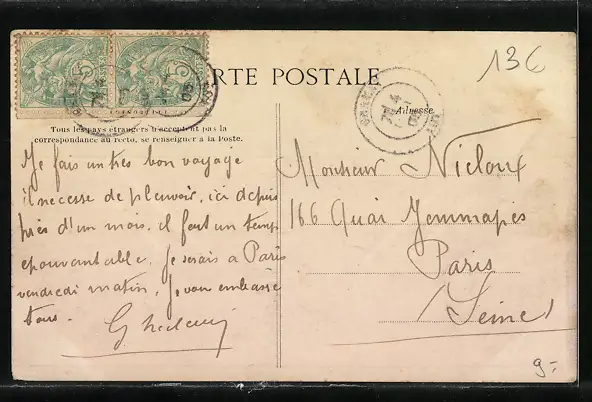 CARTE POSTALE
13€
Adresse
Tous les pays étrangers n'acceptent pas la
correspondance au recto, se renseigner à la Poste.
Je fais un très bon voyage
il ne cesse de pleuvoir, ici depuis
près d'un mois, il fait un temps
épouvantable, je serais a Paris
vendredi matin, Je vous embrasse
tous.
Monsieur Nicloux
166 Quai Jemmapes
Paris
(Seine)
9-